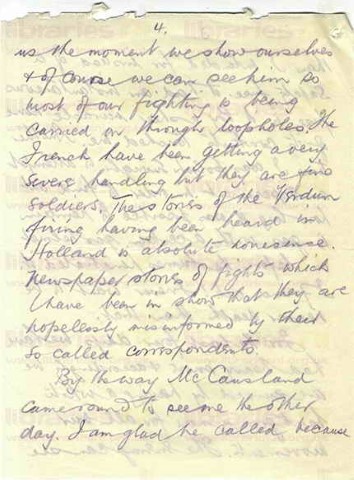 4.
us the moment we show ourselves
& of course we can see him so
most of our fighting is being
carried on through loopholes. The
French have been getting a very
severe handling but they are fine
soldiers. The stories of the Verdun
firing having been heard in
Holland is absolute nonesense.
Newspaper stories of fights which
I have been in show that they are
hopelessly misinformed by their
so called correspondents.
By the way McCausland
came round to see me the other
day. I am glad he called because